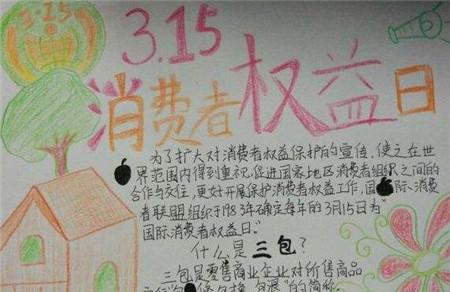 3·15
3.15
消费者权益日
为了扩大对消费者权益保护的宣传,使之在世
界范围内得到重视,促进国家地区消费者组织之间的
合作与交往,更好开展保护消费者权益工作,国际消费
者联盟组织于1983年确定每年的3月15日为“
国际消费者权益日”。
什么是三包?
三包是零售商业企业对所售商品